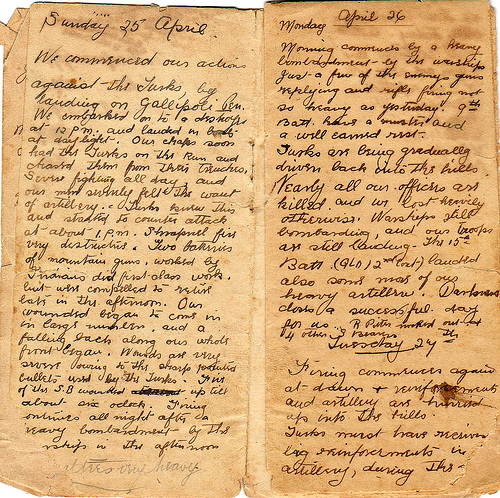 Sunday 25 April.
We commenced our actions
against the Turks by
landing on Gallipoli Pen.
We embarked on to a destroyer
at 12 P.M. and landed in boats
at daylight. Our chaps soon
had the Turks on the Run and
chased them from their trenches,
Severe fighting all day and
our men severely felt the want
of artillery. Turks knew this
and started to counter attack
at about 1 P.M. Shrapnel fire
very destructive. Two batteries
of mountain guns, worked by
Indians did first class work.
but were compelled to retire
late in the afternoon. Our
wounded began to come in
in large numbers, and a
falling back along our whole
front began. Wounds are very
severe owing to the sharp pointed
bullets used by the Turks. Five
of the S.B wounded up till
about six oclock. Firing
continues all night after a
heavy bombardment by the
warships in the afternoon
heavy
Monday April 26
Morning commences by a heavy
bombardment by the warships
Just a few of the enemys guns
replying and rifle firing not
so heavy as yesterday. 9th
Batt. have a muster and
a well earned rest.
Turks are being gradually
driven back into the hills.
Nearly all our officers are
killed. and we lost heavily
otherwise. Warships still
bombarding, and our troops
are still landing. The 15th
Batt. (QLD) landed
also some more of our
heavy artillery. Darkness
closes a successful day
for us. R Potts out
4 other bearers
Tuesday 27th
Firing commences again
at dawn & reinforcements
and artillery are hurried
up into the hills.
Turks must have received
big reinforcements in
artillery, during the